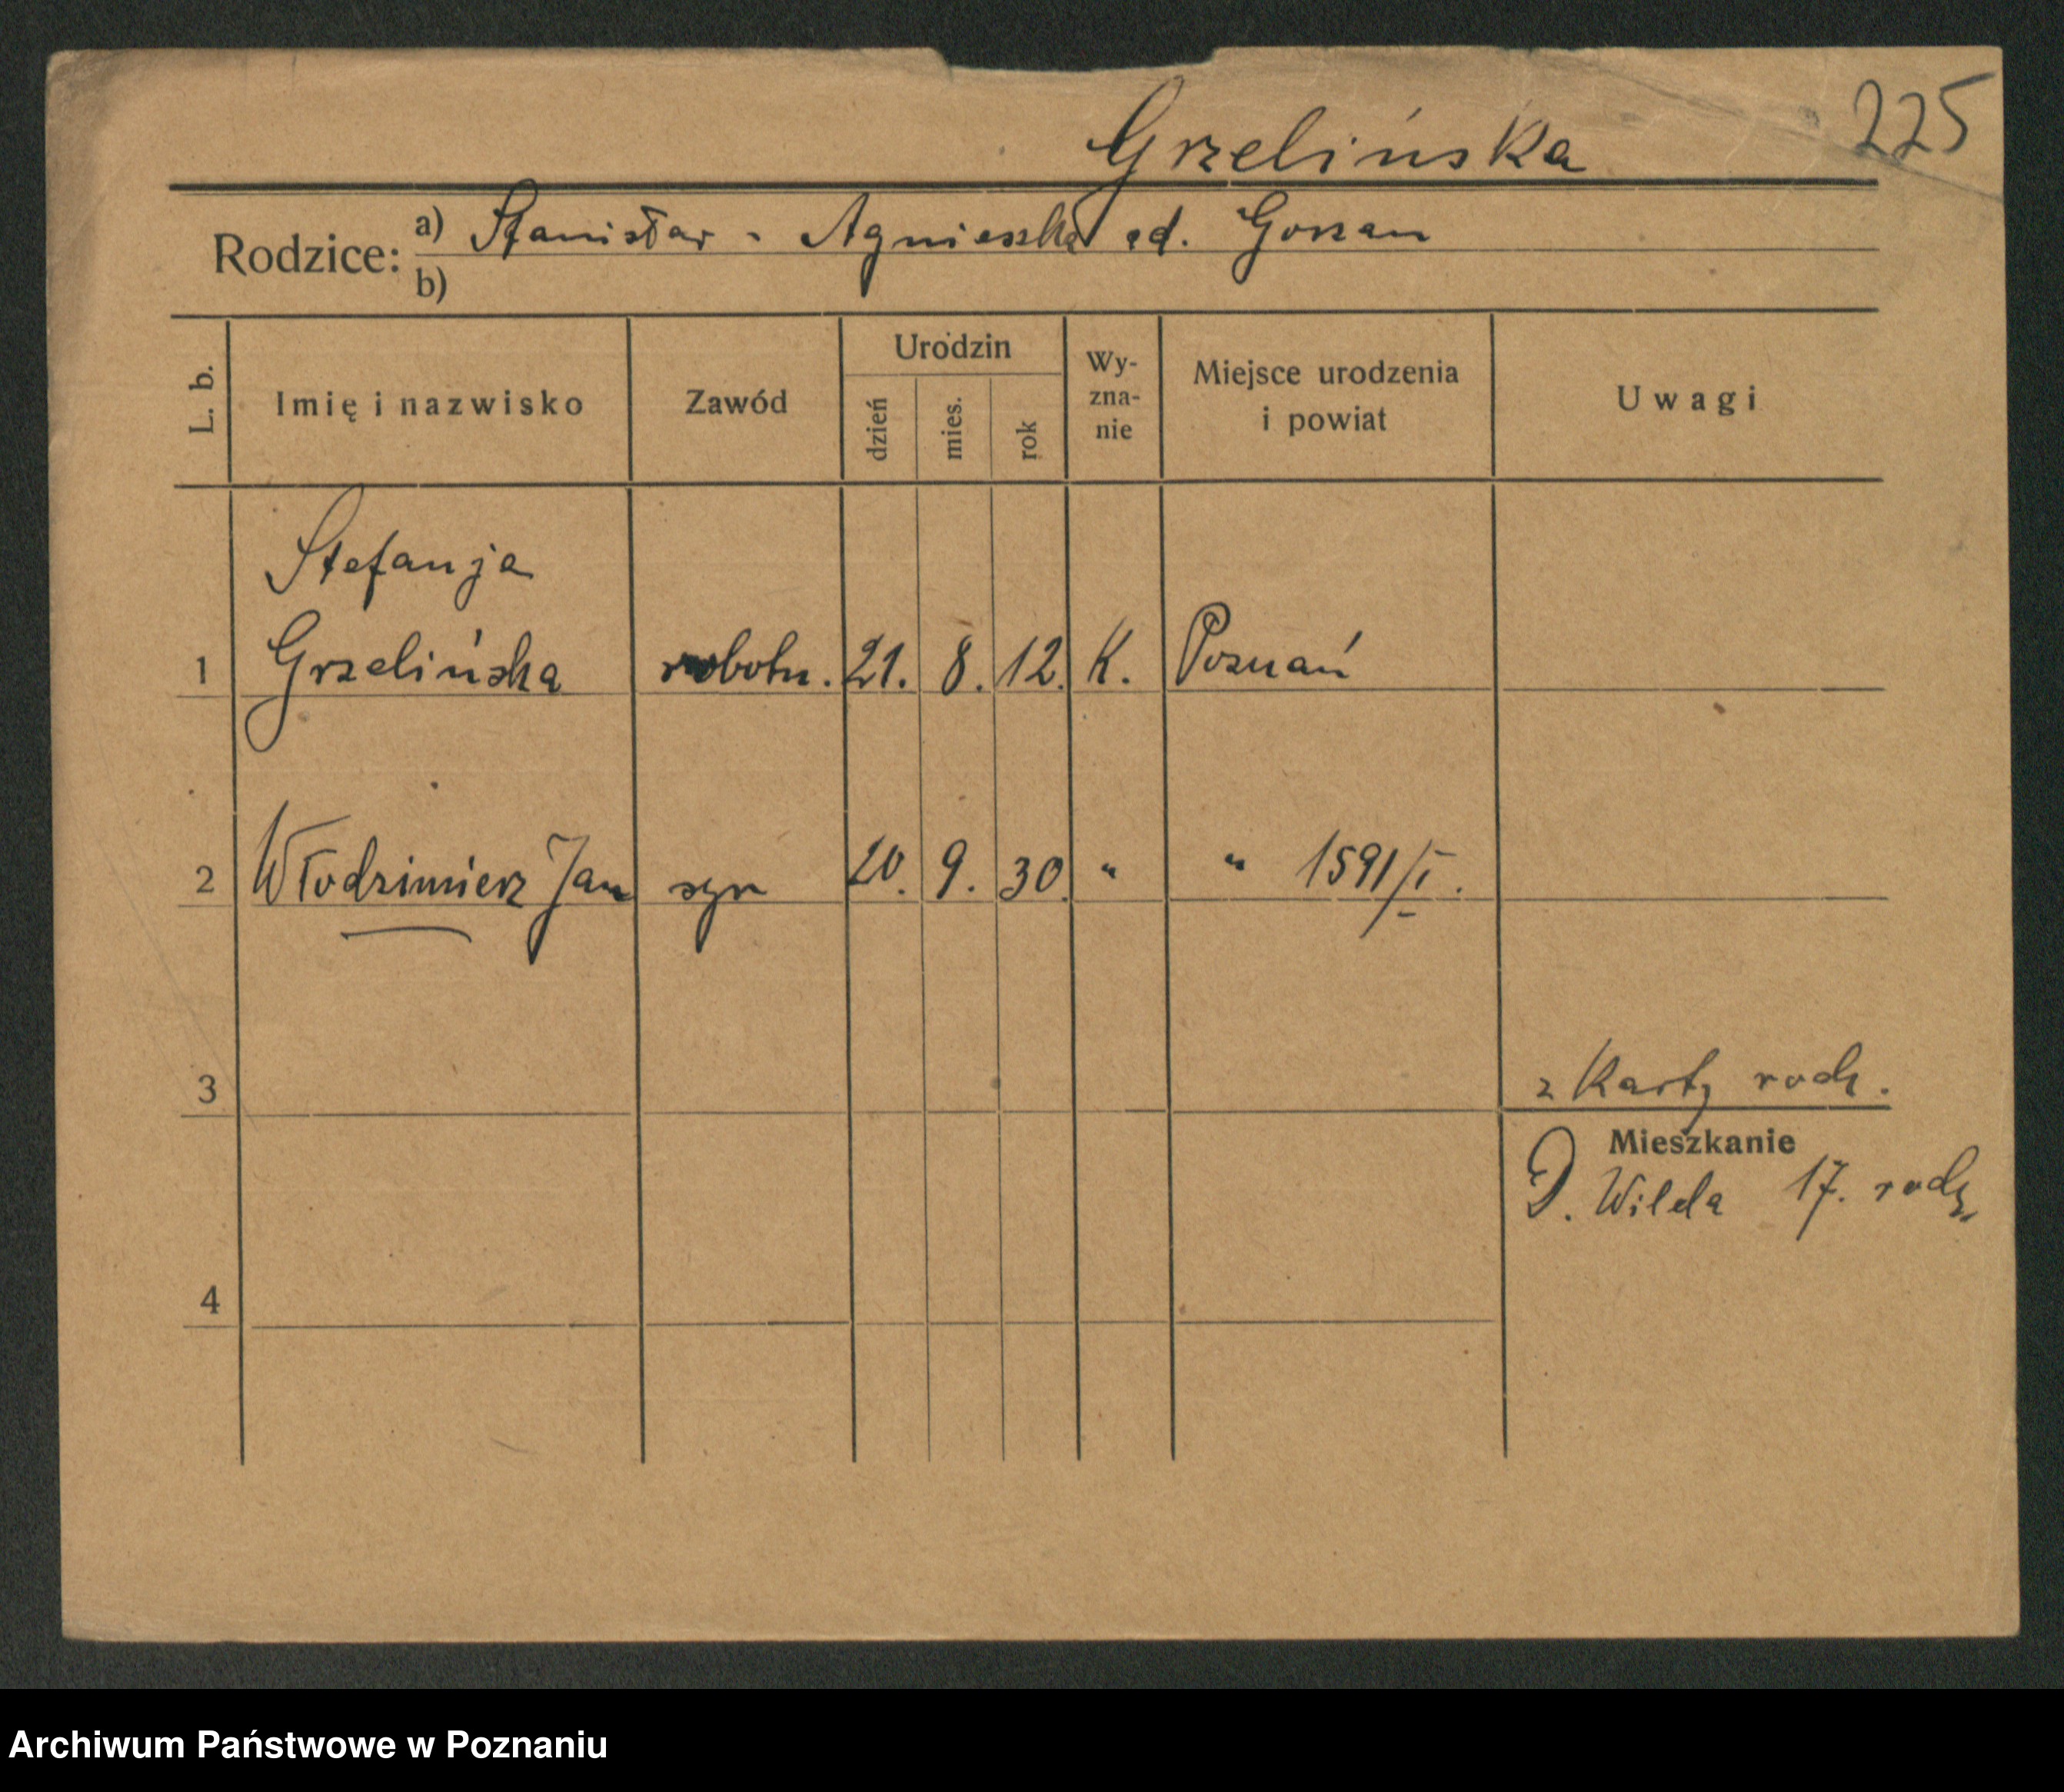 225
Grzelińska
Rodzice: a) Stanisław - Agnieszka
b)
L. b. Imię i nazwisko Zawód Urodzin dzień mies. rok Wy-zna-nie Miejsce urodzenia i powiat Uwagi
Stefanja
1 Grzelińska robotn. 21. 8. 12. K. Poznań
2 Włodzimierz Jan syn 20. 9. 30. " " 1591/I.
3 z Karty rodz.
Mieszkanie
D. Wilda 17. rodz.
4
Archiwum Państwowe w Poznaniu